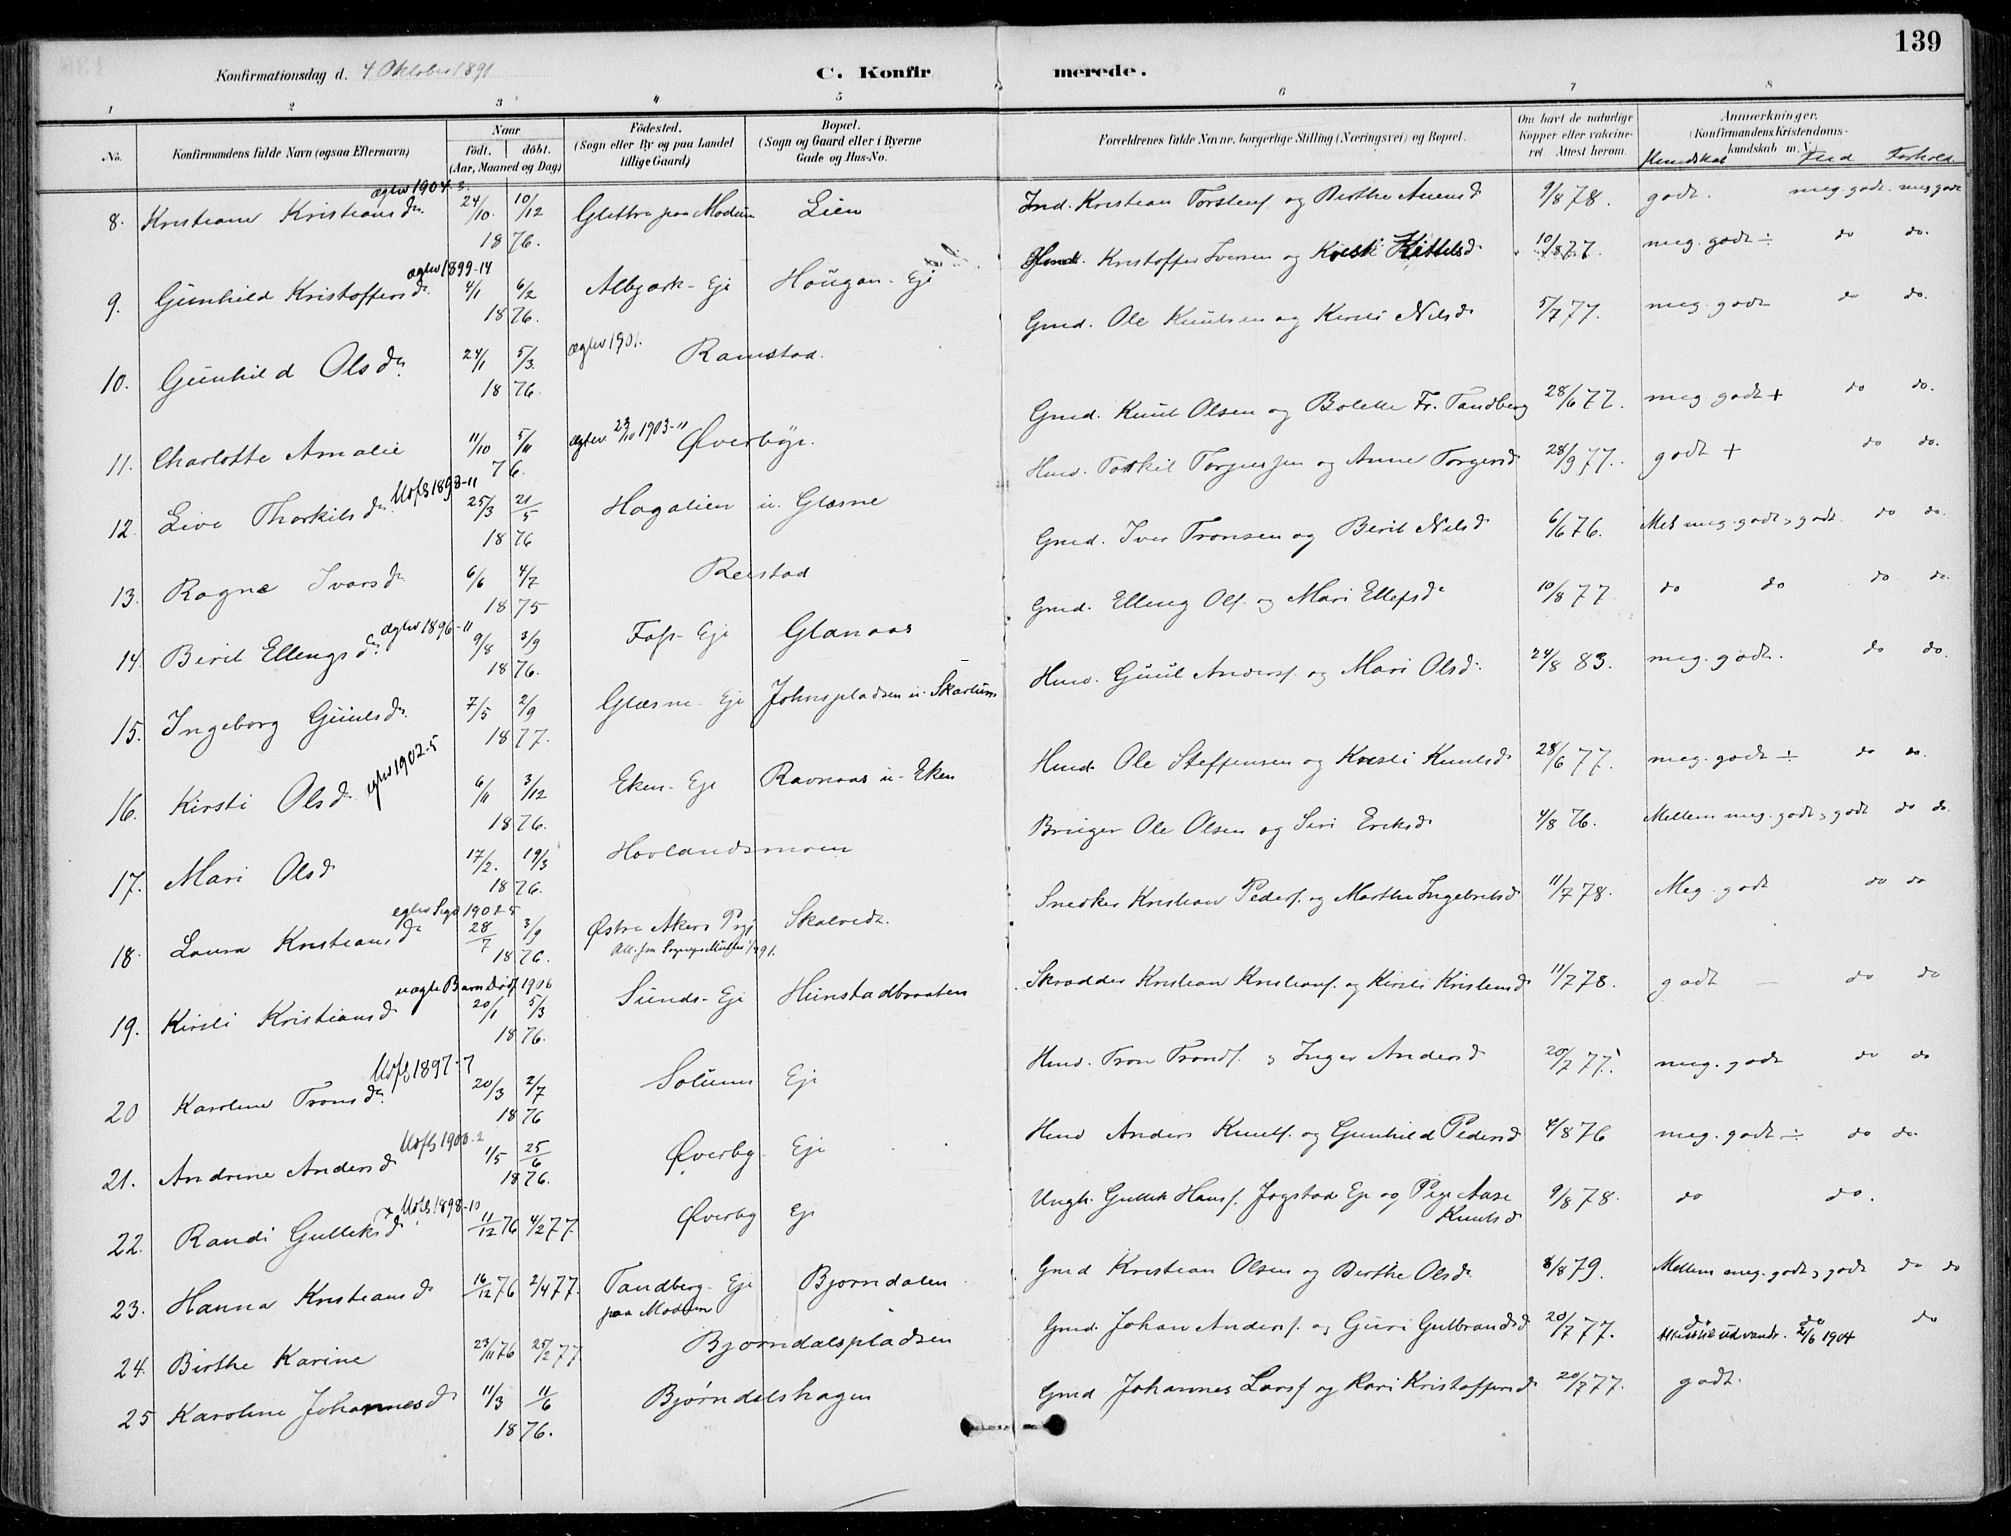 139
Konfirmationsdag d. 4 Oktober 1891
C. Konfirmerede.
1 2 3 4 5 6 7 8
No. Konfirmandens fulde Navn (ogsaa Efternavn) Naar födt. döbt. (Aar, Maaned og Dag) Födested. (Sogn eller By og paa Landet tillige Gaard) Bopæl. (Sogn og Gaard eller i Byerne Gade og Hus-No. Forældrenes fulde Navne, borgerlige Stilling (Næringsvei) og Bopæl. Om havt de naturlige Kopper eller vakcineret. Attest herom. Anmærkninger. (Konfirmandens Kristendomskundskab m. V.)
Kundskab Flid Forhold
ægtev 1904-3
8. Kristiane Kristiansdr. 24/10 10/12 1876. Glettre paa Modum Lien Ind. Kristian Torstens. og Berthe Amundsd 9/8 78. godt. meg. godt. meg godt
ægtev 1899-14
9. Gunhild Kristoffersdr. 4/1 6/2 1876. Albjørk- Eje Haugan- Eje Kristoffer Iversen og Kirsti Kittelsd. 10/8 77. meg. godt ÷ do do.
10. Gunhild Olsdr. 24/1 5/3. 1876. ægtev 1901. Ramstad. Gmd. Ole Knutsen og Kirsti Nilsd 5/7 77. meg. godt do do.
11. Charlotte Amalie 11/10 5/11 76. ægtev 23/10 1903-11 Øverbye. Gmd. Knut Olsen og Bolette Fr. Tandberg 28/6 77. meg godt + do do.
Udfl 1893-11
12. Live Thorkilsdr. 25/3 21/5 1876 Hagalien u. Glæsne Hmd. Torkil Torgersen og Anne Torgersd 28/9 77. godt + do do.
13. Ragne Ivarsdr 6/6 4/7 1875 Reistad Gmd. Iver Tronsen og Berit Nilsd 6/6 76. Mel meg. godt, godt. do do.
ægtev 1896-11
14. Berit Ellengsdr. 9/8 3/9 1876. Foss- Eje Glanaas Gmd. Elleng Ols. og Mari Ellefsdr 10/8 77 do do do do.
15. Ingeborg Guulsdr. 7/5 2/9 1877. Glæsne- Eje Johnspladsen u. Skartum Hmd. Guul Anders. og Mari Olsd. 24/8 83. meg. godt. do do.
ægtev 1902-5
16. Kirsti Olsdr. 6/11 3/12 1876. Eken- Eje Ravnaas u. Eken Hmd. Ole Steffensen og Kirsti Knutsd. 28/6 77. meg. godt ÷ do do.
17. Mari Olsd 17/2. 19/3 1876. Hovlandsmoen Bruger Ole Olsen og Siri Eriksd. 4/8 76. Mellem meg. godt, godt do do.
ægtev 1902-5
18. Laura Kristiansdr 28/7 3/9 1876. Østre Akers Prgj Skalredt. Snedker Kristian Peders. og Marthe Ingebretsd 11/7 78. Meg. godt do do
uægte Barn død 1906
19. Kirsti Kristiansd. 20/1 5/3 1876. Sunds- Eje Hunstadbraaten Skrædder Kristian Kristians. og Kirsti Kristensd 11/7 78. godt do do
Udfl 1897-7
20 Karoline Tronsdr. 20/3 2/7 1876 Solums Eje Hmd. Tron Tronds. & Inger Andersd 20/7 77. meg. godt do do
Udfl 1900-2
21. Andrine Andersd. 1/5 25/6 1876. Øverby- Eje Hmd Anders Knuts. og Gunhild Pedersd 4/8 76 meg. godt ÷ do do.
Udfl 1898-10
22. Randi Gulliksd. 11/12 76 4/2 77. Øverby Eje Ungk. Gullik Hans. Jogstad Eje og Pige Aase Knutsd 9/8 78. do do.
23. Hanna Kristiansd. 16/12 76 2/4 77. Tandberg- Eje paa Modum Bjørndalen Gmd Kristian Olsen og Berthe Olsd. 8/8 79. Mellem meg. godt, godt do do
24. Birthe Karine 23/11 76 25/2 77 Bjørndalspladsen Gmd. Johan Anders. og Guri Gulbrandsd 20/7 77. do do do
Attest til udvandr. 21/6 1904
25 Karoline Johannesd. 11/3 11/6 1876. Bjørndalshagen Gmd Johannes Lars. og Kari Kristoffersd 20/7 77. godt.